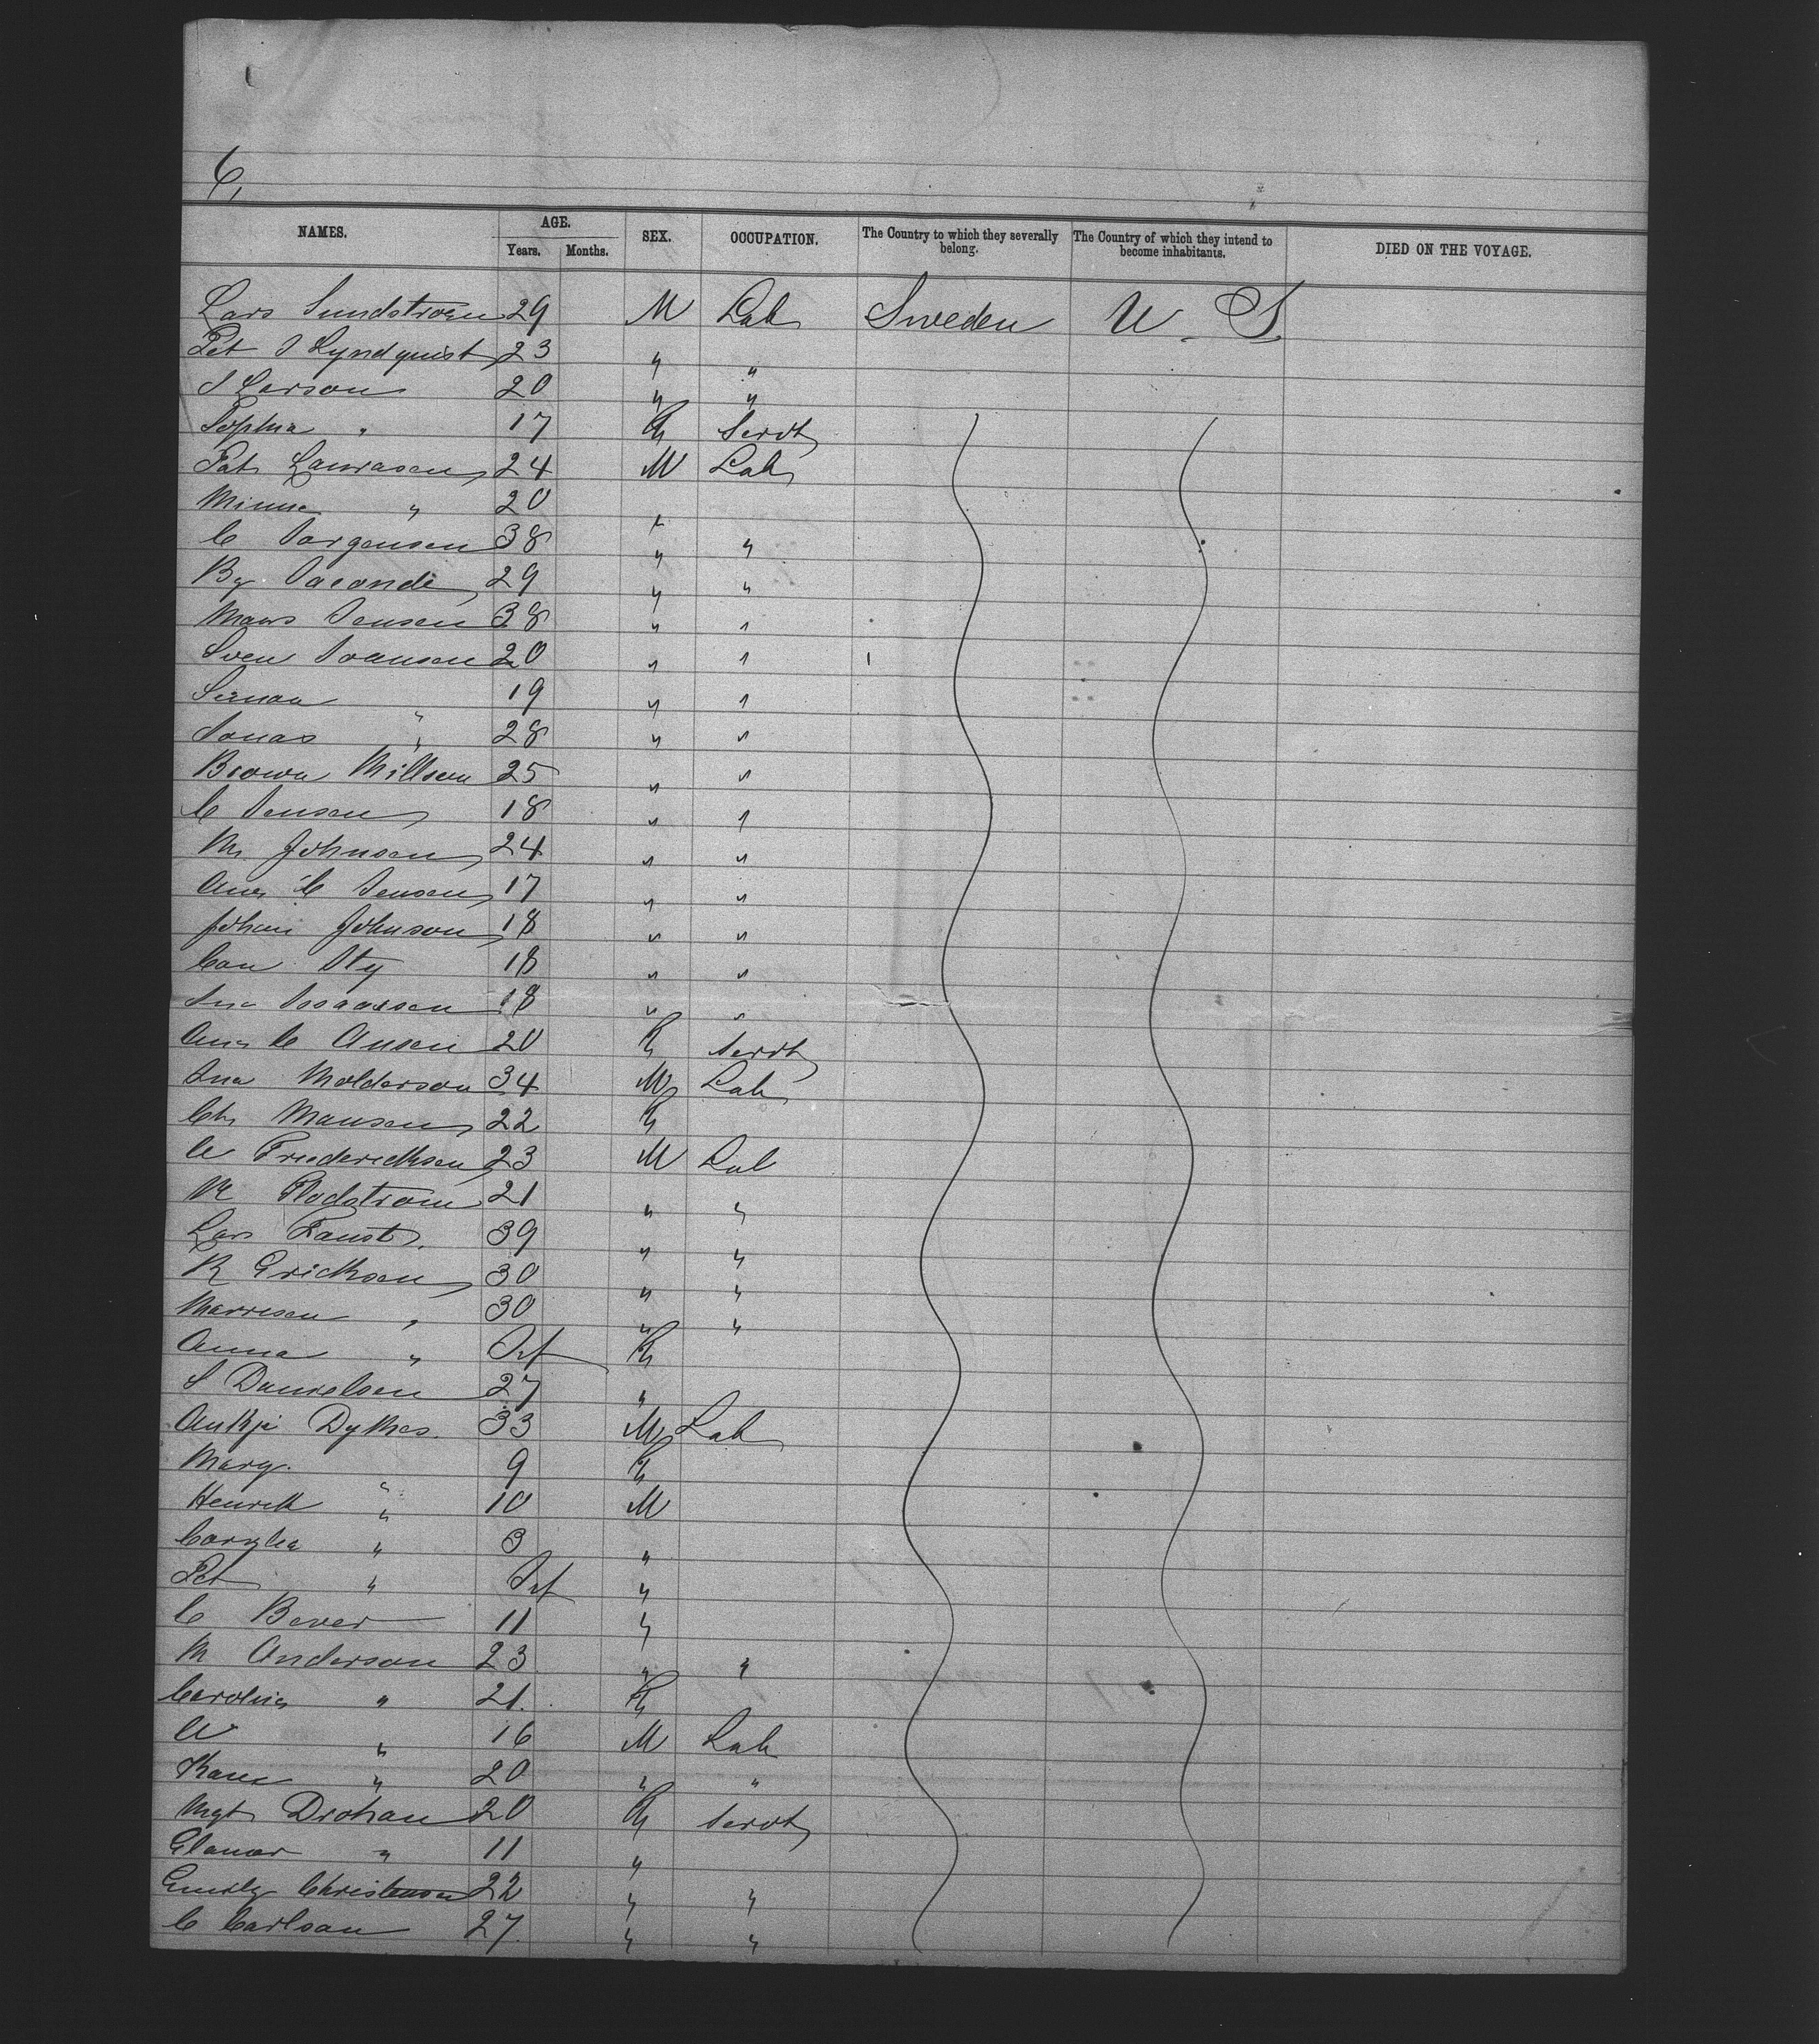 6,
NAMES. AGE. Years. Months. SEX. OCCUPATION. The Country to which they severally belong. The Country of which they intend to become inhabitants. DIED ON THE VOYAGE.
Lars Sundstroem 29 M Lab Sweden U. S.
Pet J Lyndquist 23 " "
J Larson 20 " "
Sophia " 17 F Servt
Pat Laurasen 24 M Lab
Minna " 20
C Jorgensen 38 " "
29 " "
Mans Jensen 38 " "
Sven Soensen 20 " "
19 " "
Jonas " 28 " "
Brown Millson 25 " "
C Jensen 18 " "
M Johnsen 24 " "
C Jensen 17 " "
Johan Johnson 18 " "
18 " "
Isaacsen 18 " "
C Ansen 20 F Servt
Molderson 34 M Lab
Chr Mansen 22 F
A Friedericksen 23 M Lab
Flodstrom 21 " "
Lars Faust 39 " "
K Ericksen 30 " "
Marresen " 30 " "
Anna " Inf F
S Danielsen 27 "
Dykes 33 M Lab
Mary " 9 F
Henrik " 10 M
" 3 "
Pet " Inf "
C Bever 11 "
M Anderson 23 " "
Carolina " 21 F
A " 16 M Lab
" 20 " "
Mgt Drohan 20 F Servt
Elanor " 11 "
Emily Christenson 22 " "
C Carlson 27 " "